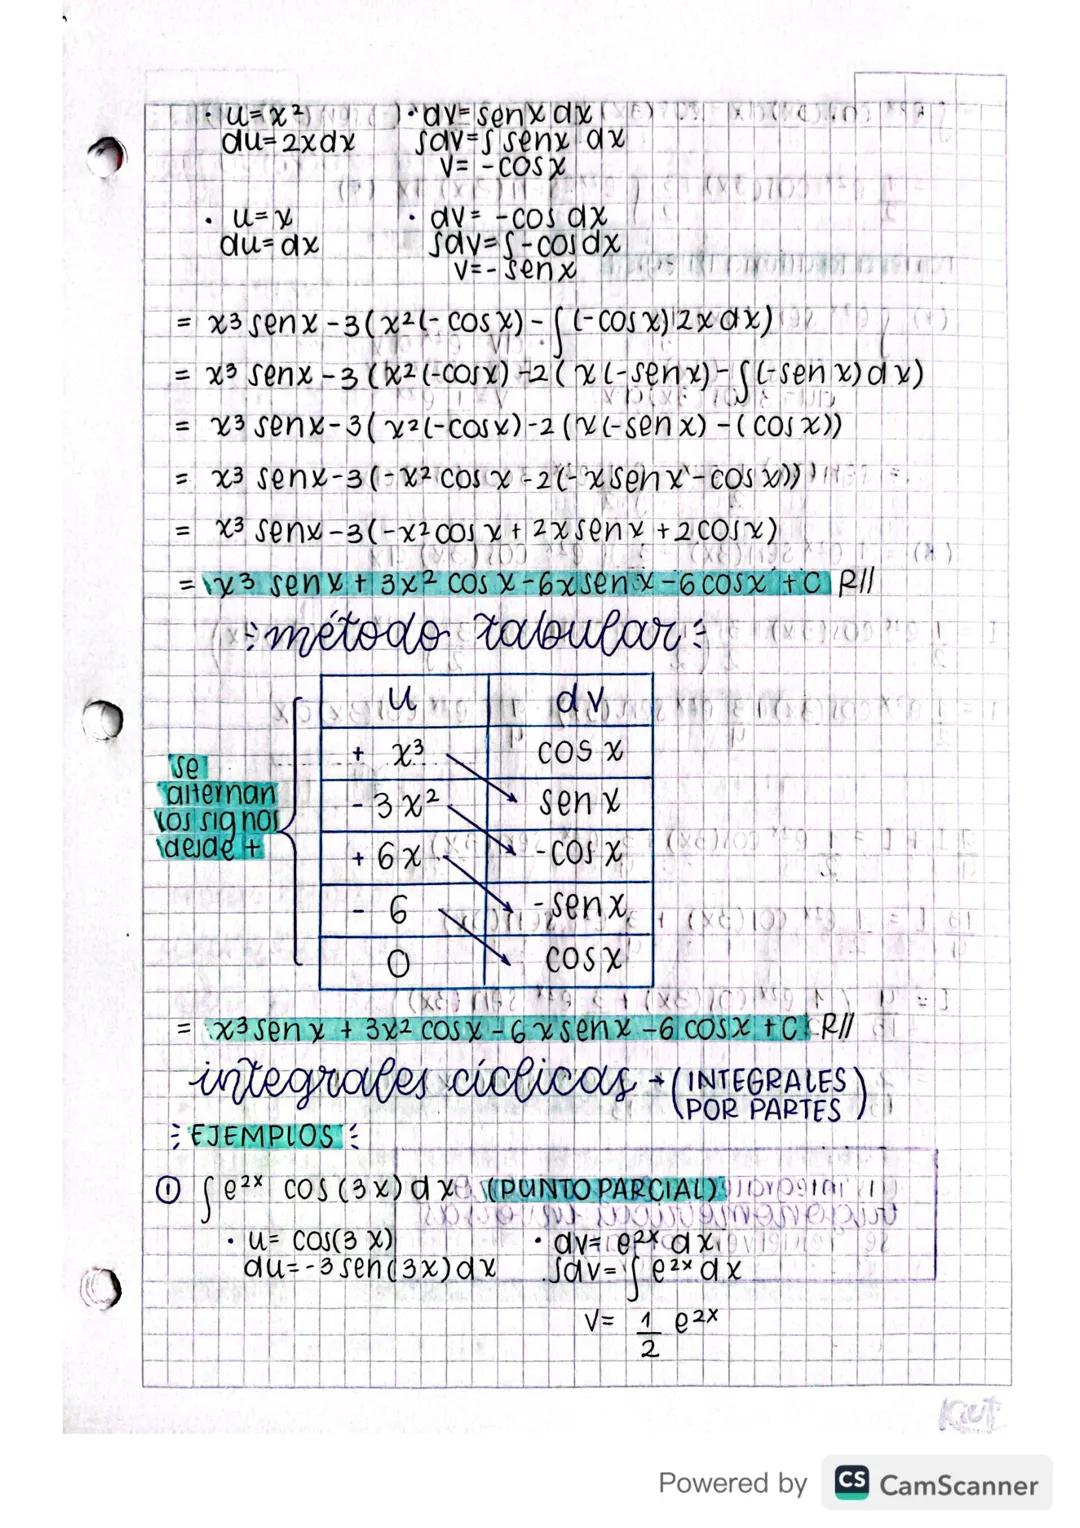 · u=x² · dv=senx dx
du=2xdx ∫dv=∫senx dx
v= -cosx
· u=x · dv= -cos dx
du=dx ∫dv=∫-cosdx
v=-senx
= x³ senx -3(x²(-cosx) - ∫(-cosx)2xdx)
= x³ senx -3(x²(-cosx) -2(x(-senx)-∫(-senx)dx)
= x³ senx-3(x²(-cosx)-2(x(-senx)-(cosx))
= x³ senx-3(-x² cosx -2(-xsenx-cosx))
= x³ senx-3(-x²cosx+2xsenx+2cosx)
= x³ senx + 3x² cosx-6xsenx-6cosx+C R//
método tabular:
u dv
+ x³ cosx
- 3x² senx
+ 6x -cosx
- 6 -senx
0 cosx
se
alternan
los signos
desde +
= x³senx + 3x² cosx-6xsenx-6cosx+C R//
integrales cíclicas → (INTEGRALES
POR PARTES)
EJEMPLOS
① ∫e²ˣ cos(3x)dx (PUNTO PARCIAL)
· u= cos(3x) · dv= e²ˣ dx
du=-3sen(3x)dx ∫dv=∫e²ˣdx
v= 1/2 e²ˣ
Powered by CS CamScanner